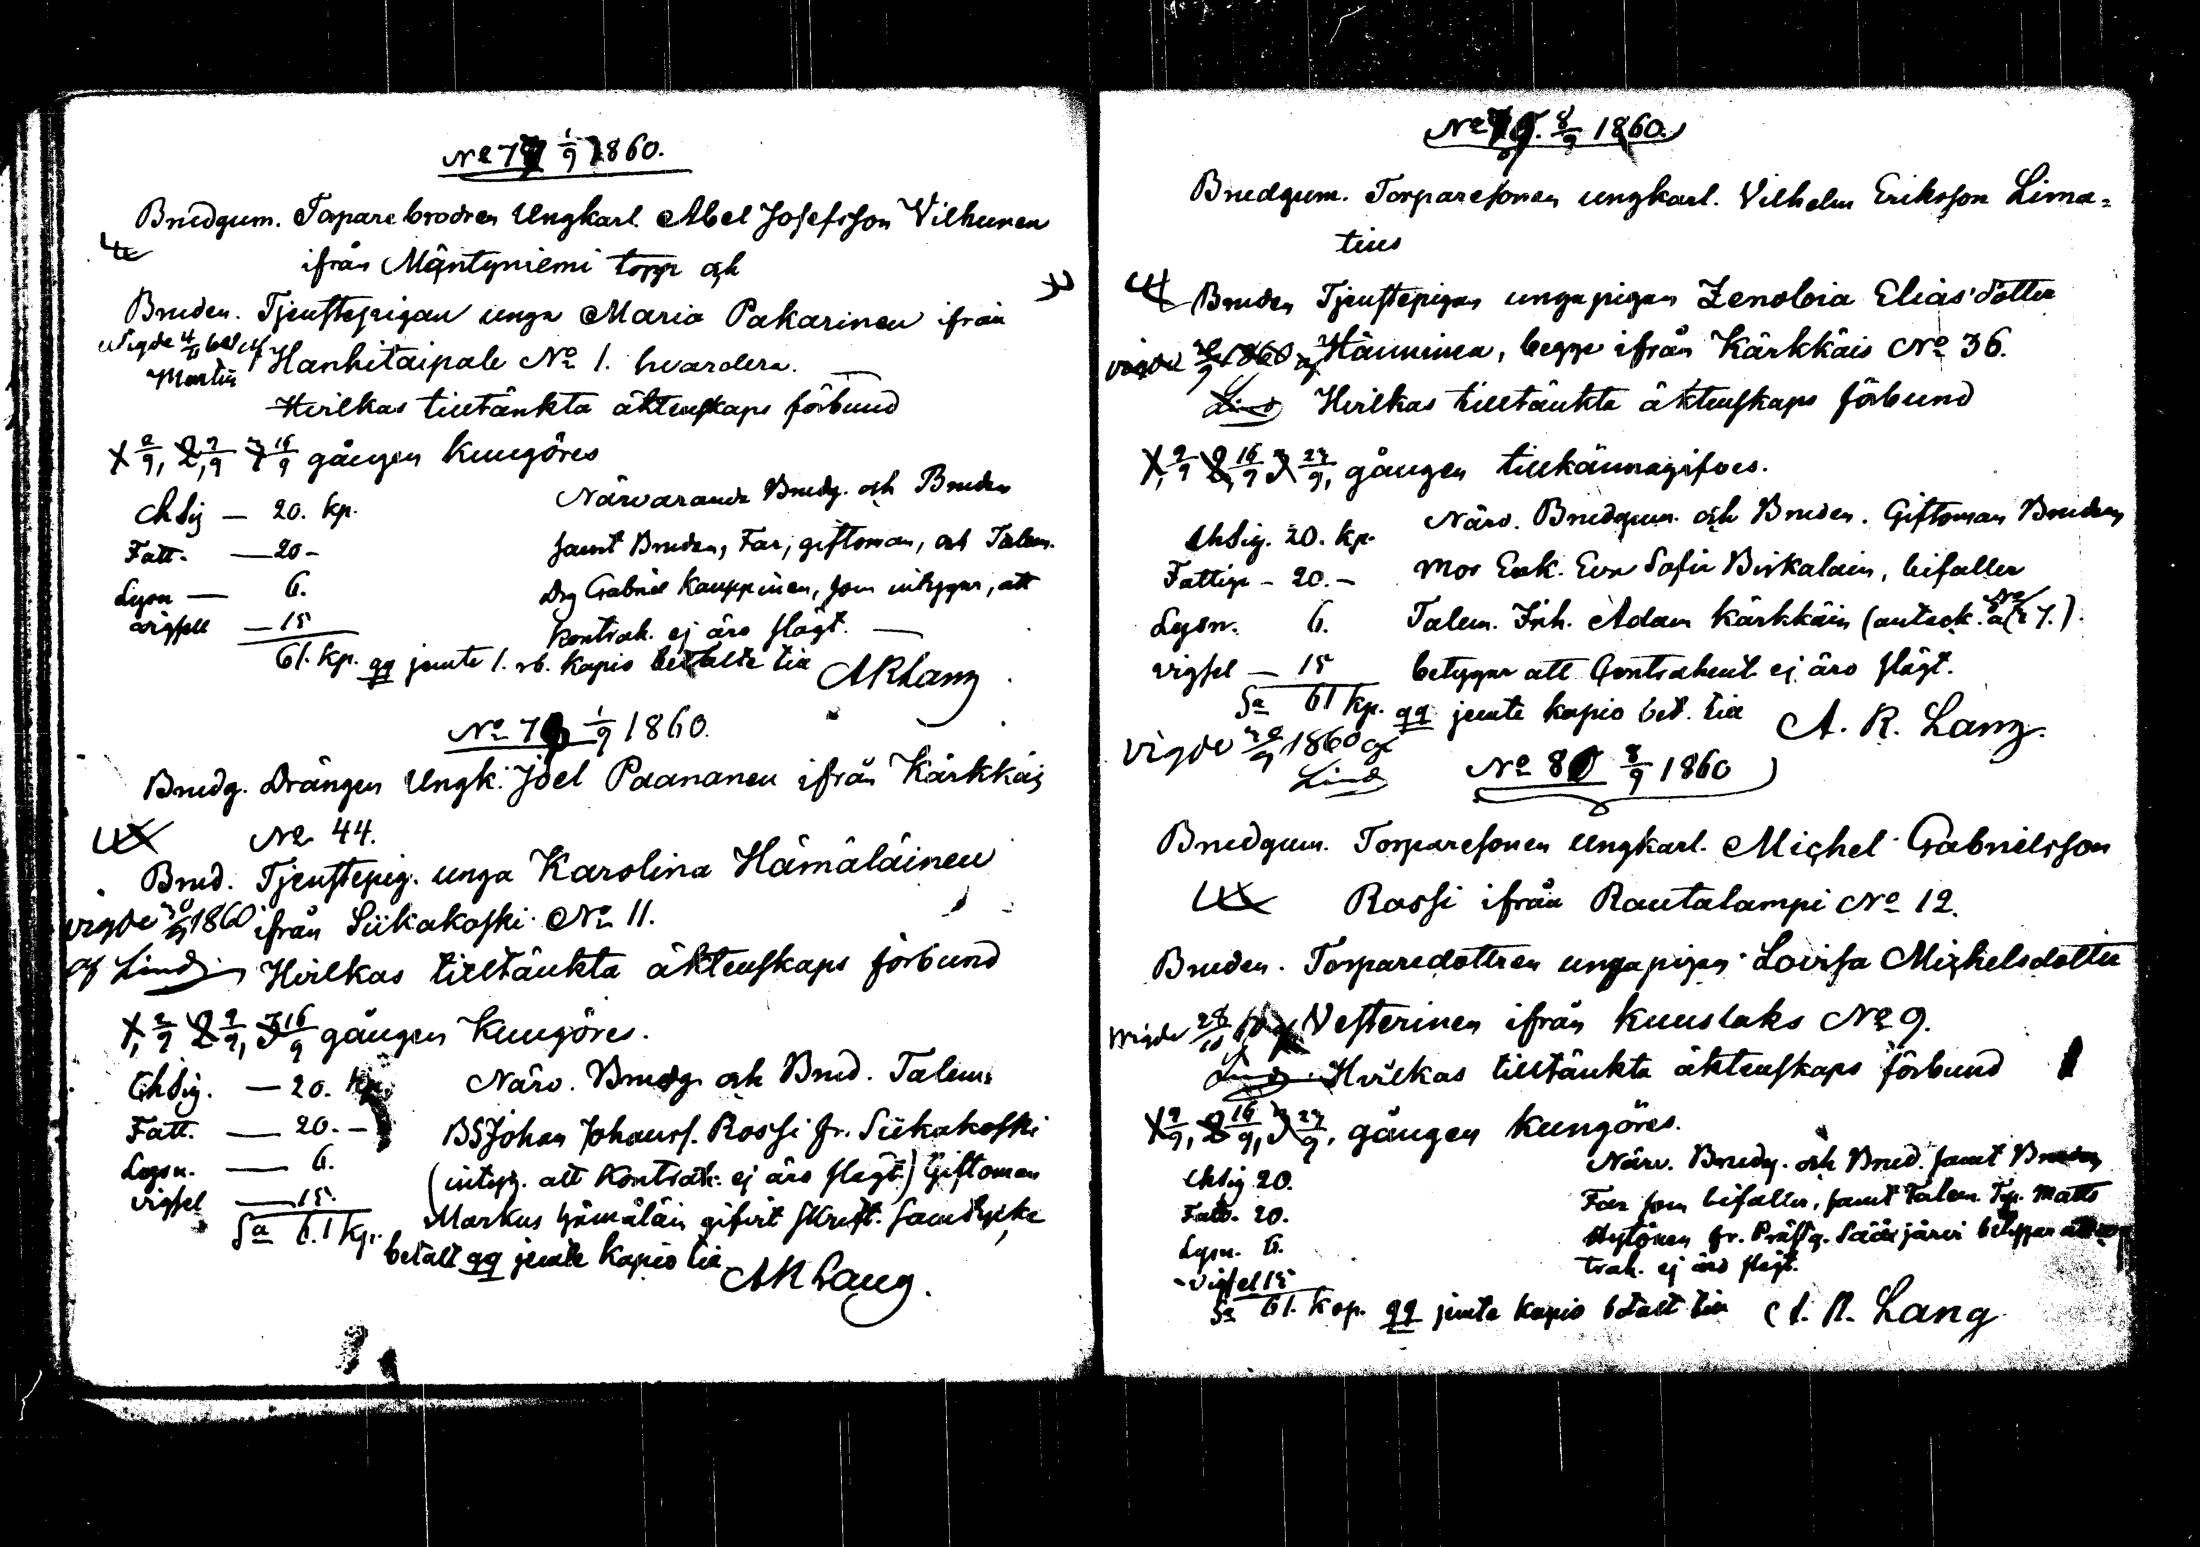 No 77 1/9 1860.
Brudgum. Torpare brodren Ungkarl Abel Josefsson Vilhunen
ifrån Mäntyniemi torpr och
Bruden. Tjenstepigan unga Maria Pakarinen ifrån
Vigde
Martin Hanhitaipale No 1. hvardera.
Hvilkas tilltänkta äktenskaps förbund
1, 2/9, 2, 9/9 3 16/9 gången kungöres
ChSig — 20. kp. Närvarande Brudg. och Bruden
Fatt. — 20 – samt Bruden, Far, giftoman, och Talem.
Lysn — 6. Drg Gabriel Kauppinen, som intygar, att
vigsell — 15 kontrah. ej äro slägt. —
61. kp. qq jemte 1. rb. kapio betalte tia ARLang
No 78 1/9 1860.
Brudg. Drängen Ungk. Joel Paananen ifrån Kärkkäis
No 44.
Brud. Tjenstepig. unga Karolina Hämäläinen
vigde 30/9 1860 ifrån Siikakoski No 11.
af Lind Hvilkas tilltänkta äktenskaps förbund
1, 2/9 2 9/9, 3 16/9 gången kungöres.
ChSig. — 20. kp. Närv. Brudg. och Brud. Talem.
Fatt. — 20. – BS Johan Johanss. Rossi fr. Siikakoski
Lysn. — 6. (intyg. att kontrah. ej äro slägt) Giftoman
vigsel — 15. Markus Hämäläin gifvit skrift. samtycke
Sa 61 kp. betalt qq jemte kapio tia
AR Lang.
No 79. 8/9 1860.
Brudgum. Torparesonen ungkarl. Vilhelm Eriksson Lima=
tius
Bruden Tjenstepigan unga pigan Zenobia Elias dotter
vigde 30/9 1860 af Hänninen, begge ifrån Kärkkäis No 36.
Lind Hvilkas tilltänkta äktenskaps förbund
1, 9/9 2, 16/9 3 23/9, gången tillkännagifves.
ChSig. 20. kp. Närv. Brudgum. och Bruden. Giftoman Brudens
Fattige – 20. – Mor Enk. Eva Sofia Birkalain, bifaller
Lysn. 6. Talem. Inh. Adam Kärkkäin
vigsel — 15 betygar att Contrahent ej äro slägt.
Sa 61 kp. qq jemte kapio bet. tia A. R. Lang.
vigde 30/9 1860 af
Lind
No 80 8/9 1860
Brudgum. Torparesonen Ungkarl. Michel Gabrielsson
Rossi ifrån Rautalampi No 12.
Bruden. Torparedottren unga pigan Lovisa Michelsdotter
Vigde 28/10 60 af Vesterinen ifrån Kuuslaks No 9.
Lind Hvilkas tilltänkta äktenskaps förbund
1 9/9, 2 16/9, 3 23/9, gången kungöres.
ChSig 20. Närv. Brudg. och Brud. samt Bruden
Fatt. 20. Far som bifaller, samt Talem. Trp. Matts
Lysn. 6. Hytönen fr. Prästg. Sääxjärvi betygar att
vigsel 15 trah. ej äro slägt.
Sa 61. kop. qq jemte kapio betalt tia A. R. Lang